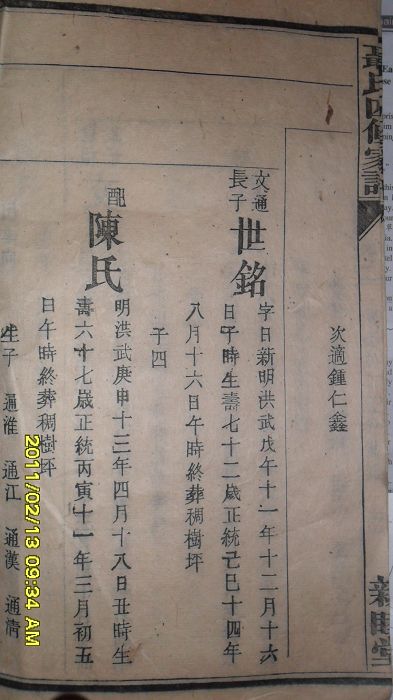 聶氏四修家譜
堂
次適鍾仁鑫
文通
長子
世銘
字日新明洪武戊午十一年十二月十六
日子時生壽七十二歲正統己巳十四年
八月十六日午時終葬稠樹坪
子四
配
陳氏
明洪武庚申十三年四月十八日丑時生
壽六十七歲正統丙寅十一年三月初五
日午時終葬稠樹坪
生子 通淮 通江 通漢 通清
2011/02/13 09:34 AM